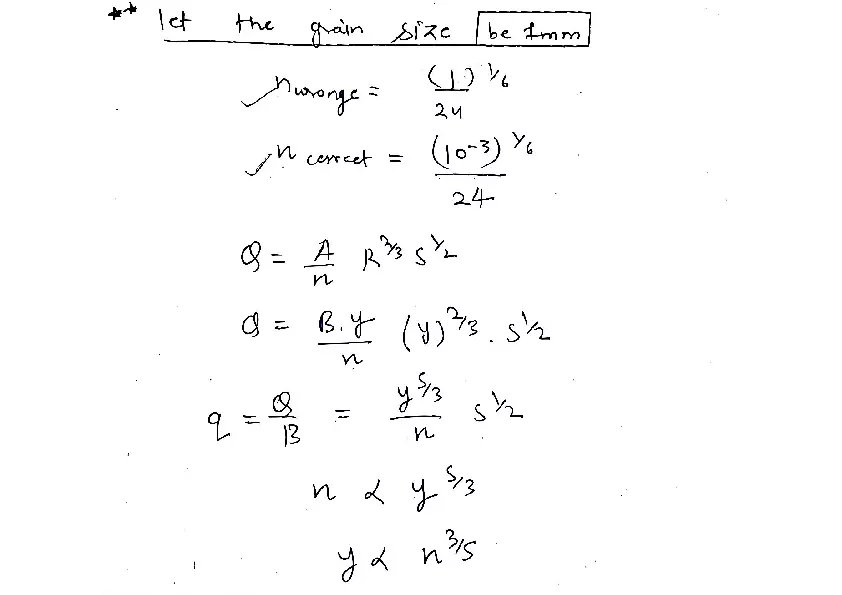 ** let the grain size be 1mm
n wronge = (1)^1/6 / 24
n correct = (10-3)^1/6 / 24
Q = A/n R^2/3 S^1/2
Q = B.y/n (y)^2/3 . S^1/2
q = Q/B = y^5/3 / n S^1/2
n α y^5/3
y α n^3/5